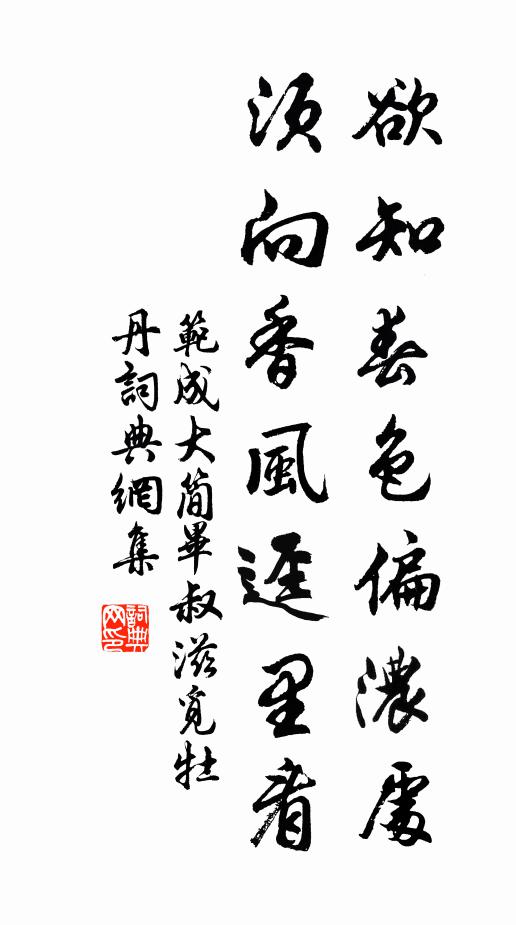 欲知春色偏濃處
須向香風逕里看
範成大簡畢叔滋覓牡
丹詞典網集
詞典
网印